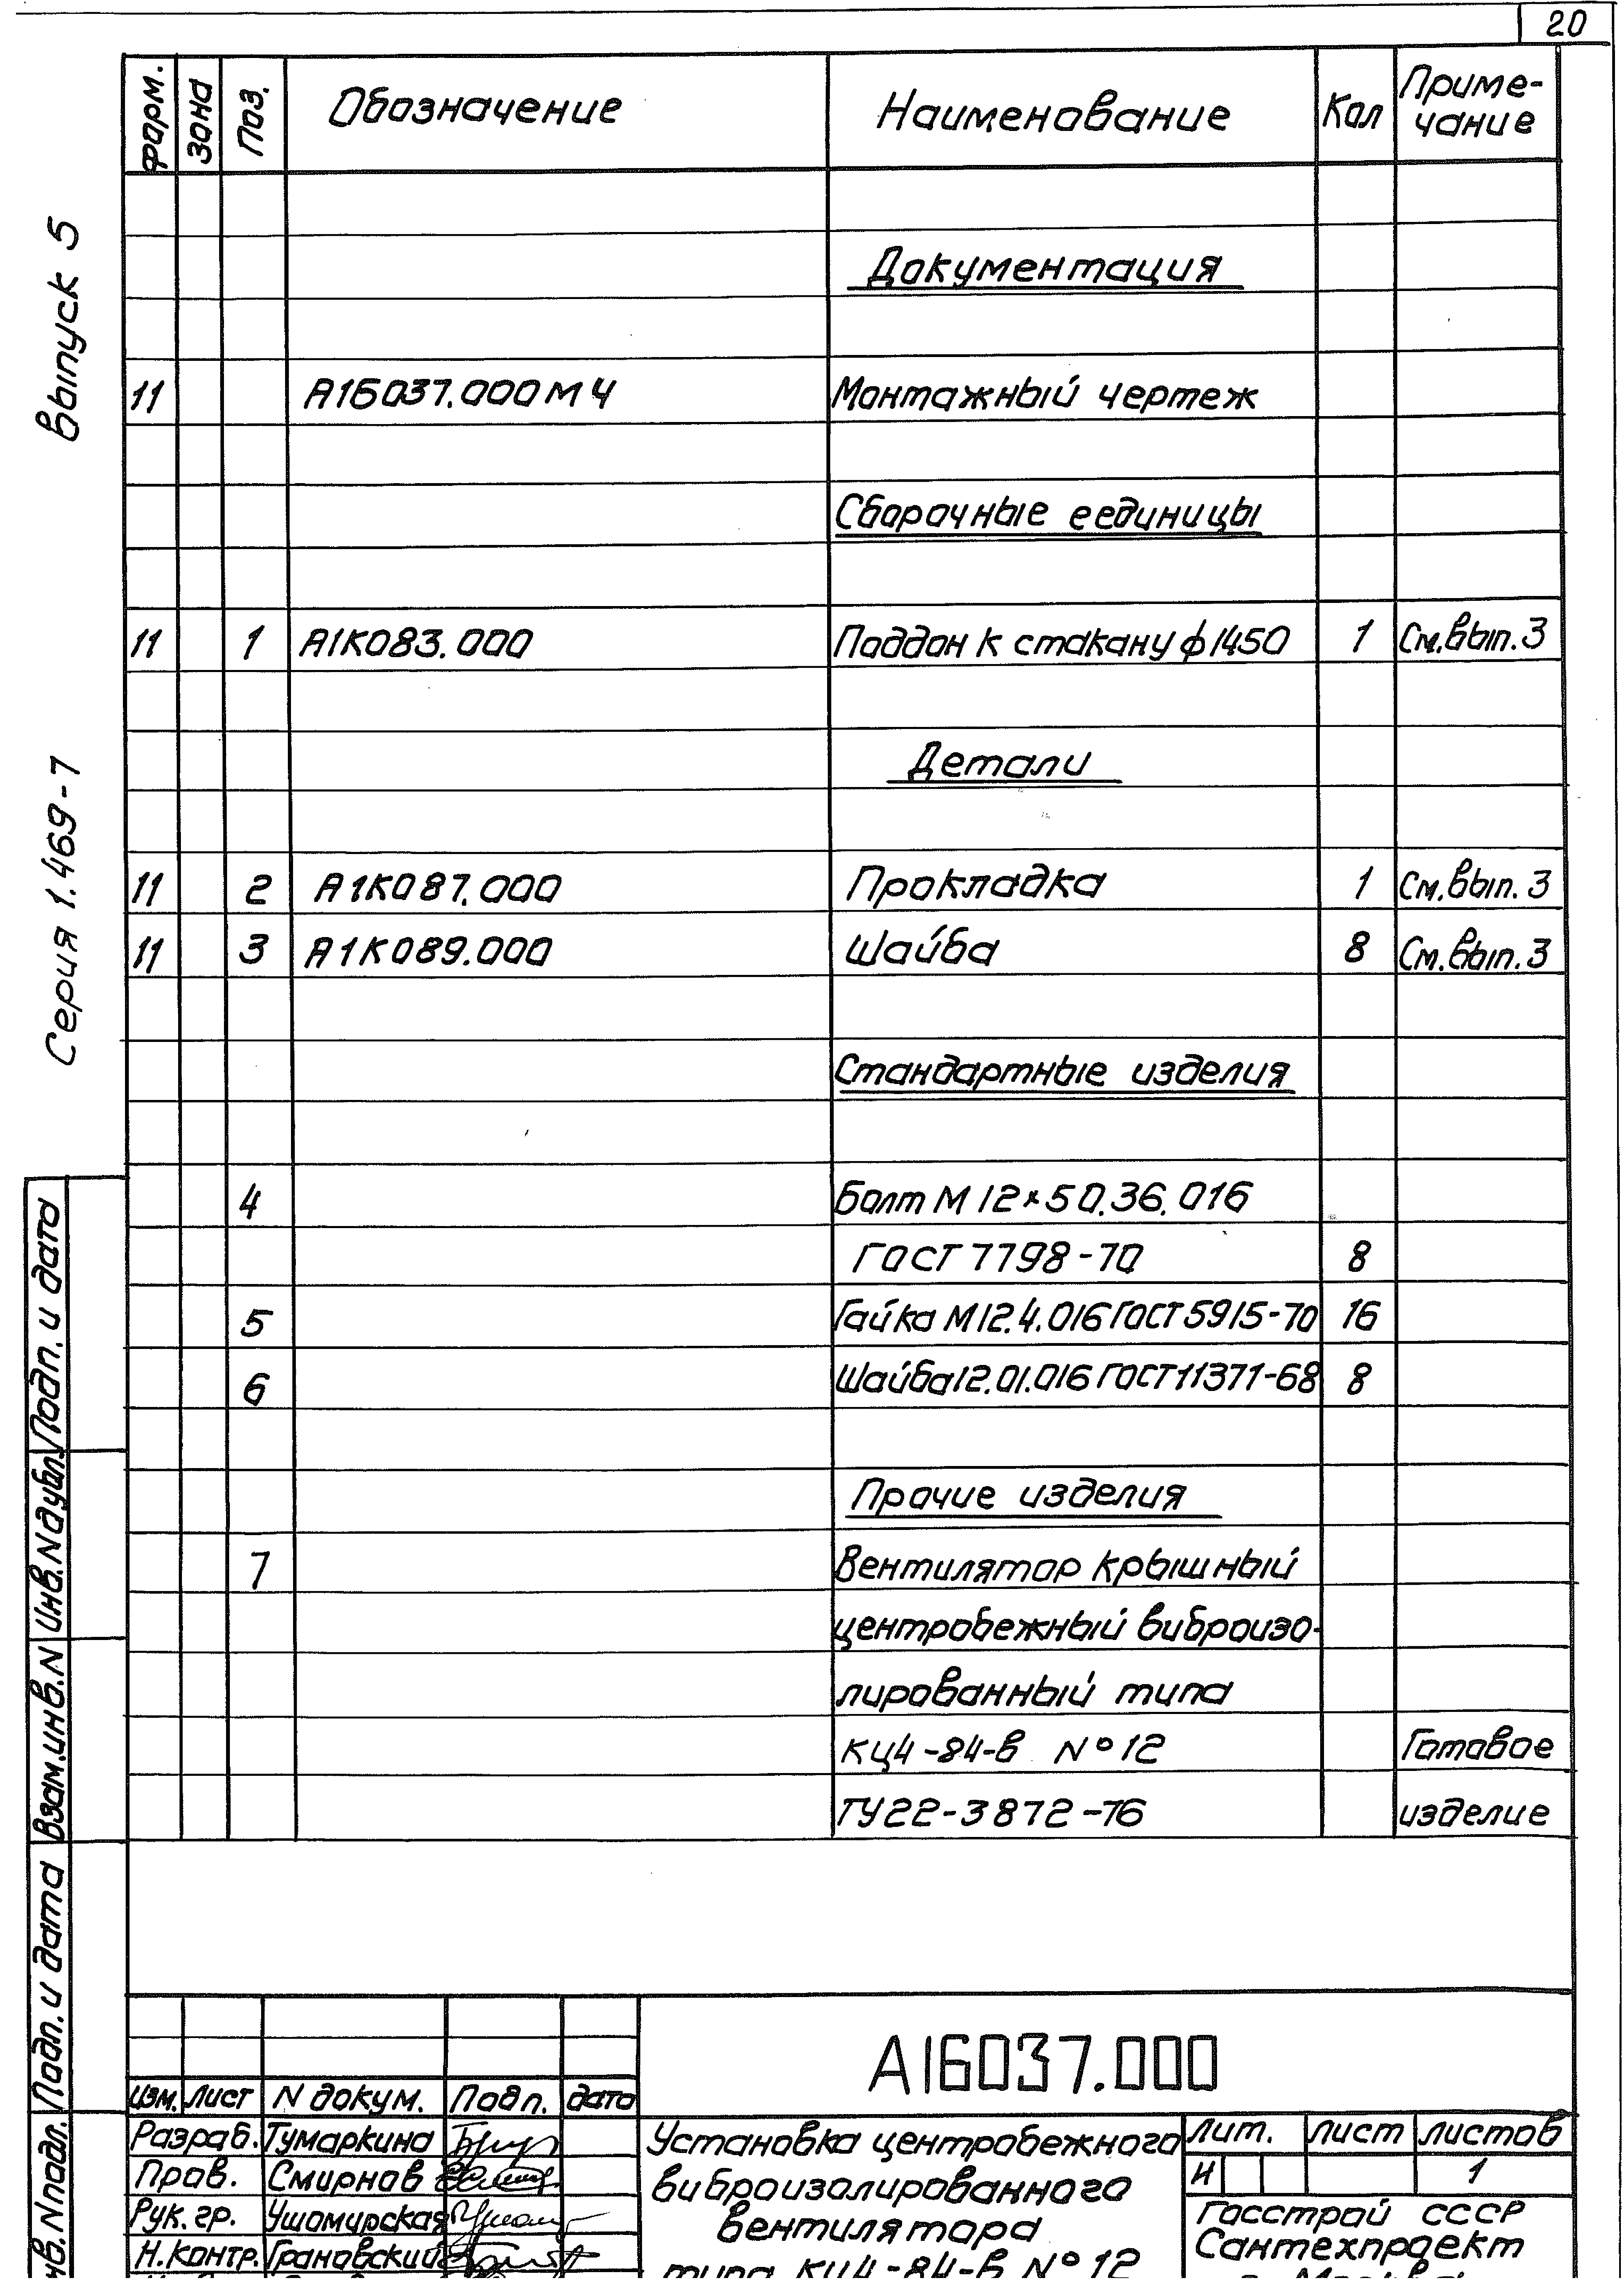 20
Форм. Зона Поз. Обозначение Наименование Кол Приме-
чание
Выпуск 5
Документация
11 А16037.000МЧ Монтажный чертеж
Сборочные еединицы
11 1 А1К083.000 Поддон к стакану ф1450 1 См.вып.3
Серия 1.469-7
Детали
11 2 А1К087.000 Прокладка 1 См.вып.3
11 3 А1К089.000 Шайба 8 См.вып.3
Стандартные изделия
4 Болт М12×50.36.016
ГОСТ 7798-70 8
5 Гайка М12.4.016 ГОСТ 5915-70 16
6 Шайба 12.01.016 ГОСТ 11371-68 8
Прочие изделия
7 Вентилятор крышный
центробежный виброизо-
лированный типа
КЦ4-84-В №12 Готовое
ТУ22-3872-76 изделие
Подп. и дата
Инв.N дубл.
Взам.инв.N
Подп. и дата
нв.N подл.
А16037.000
Изм. Лист N докум. Подп. дата
Разраб. Тумаркина
Пров. Смирнов
Рук. гр. Ушомирская
Н.контр. Грановский
Установка центробежного
виброизолированного
вентилятора
типа КЦ4-84-В №12
Лит. Лист Листов
И 1
Госстрой СССР
Сантехпроект
г. Москва